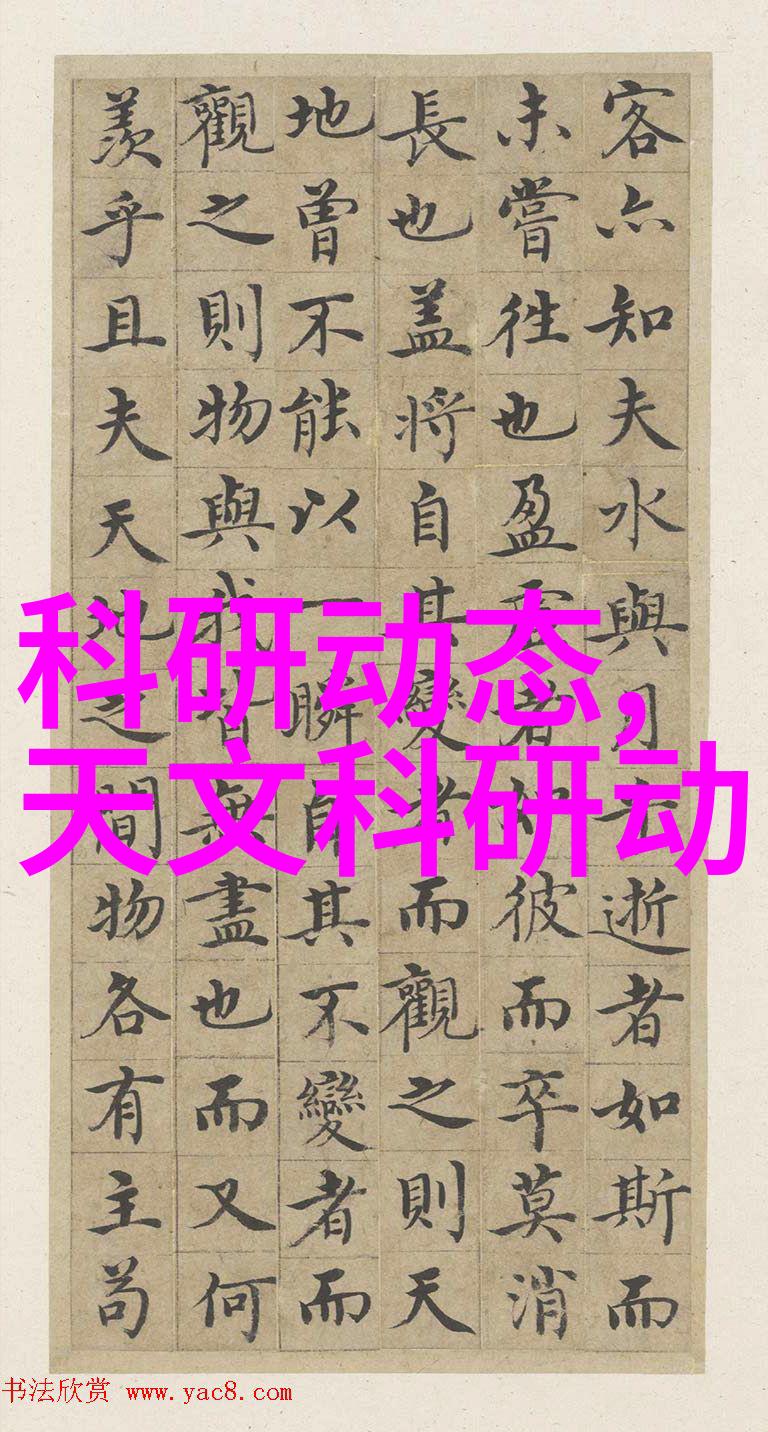 客亦知夫水與月逝者如斯而
未嘗往也盈虛者如彼而卒莫消
長也盖將自其變者而觀之則天
地曾不能以一瞬自其不變者而
觀之則物與我皆無盡也而又何
羨乎且夫天地之間物各有主苟
科研动态,
天文科研动
书法欣赏 www.yac8.com